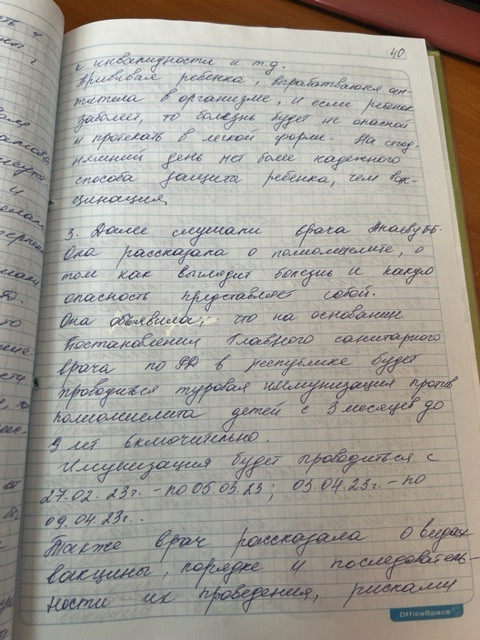 40
к инвалидности и т.д.
Прививая ребенка, вырабатываются ан-
титела в организме, и если ребенок
заболеет, то болезнь будет не опасной
и протекать в легкой форме. На сегод-
няшний день нет более надежного
способа защита ребенка, чем вак-
цинация.
3. Далее слушали врача
Она рассказала о полиомиелите, о
том как выглядит болезнь и какую
опасность представляет собой.
Она объявила, что на основании
Постановления Главного санитарного
врача по РД в республике будет
проводиться туровая иммунизация против
полиомиелита детей с 3 месяцев до
9 лет включительно.
Имунизация будет проводиться с
27.02.23г. - по 05.03.23; 03.04.23г. - по
09.04.23г..
Также врач рассказала о видах
вакцины, порядке и последователь-
ности их проведения, рисками
OfficeSpace